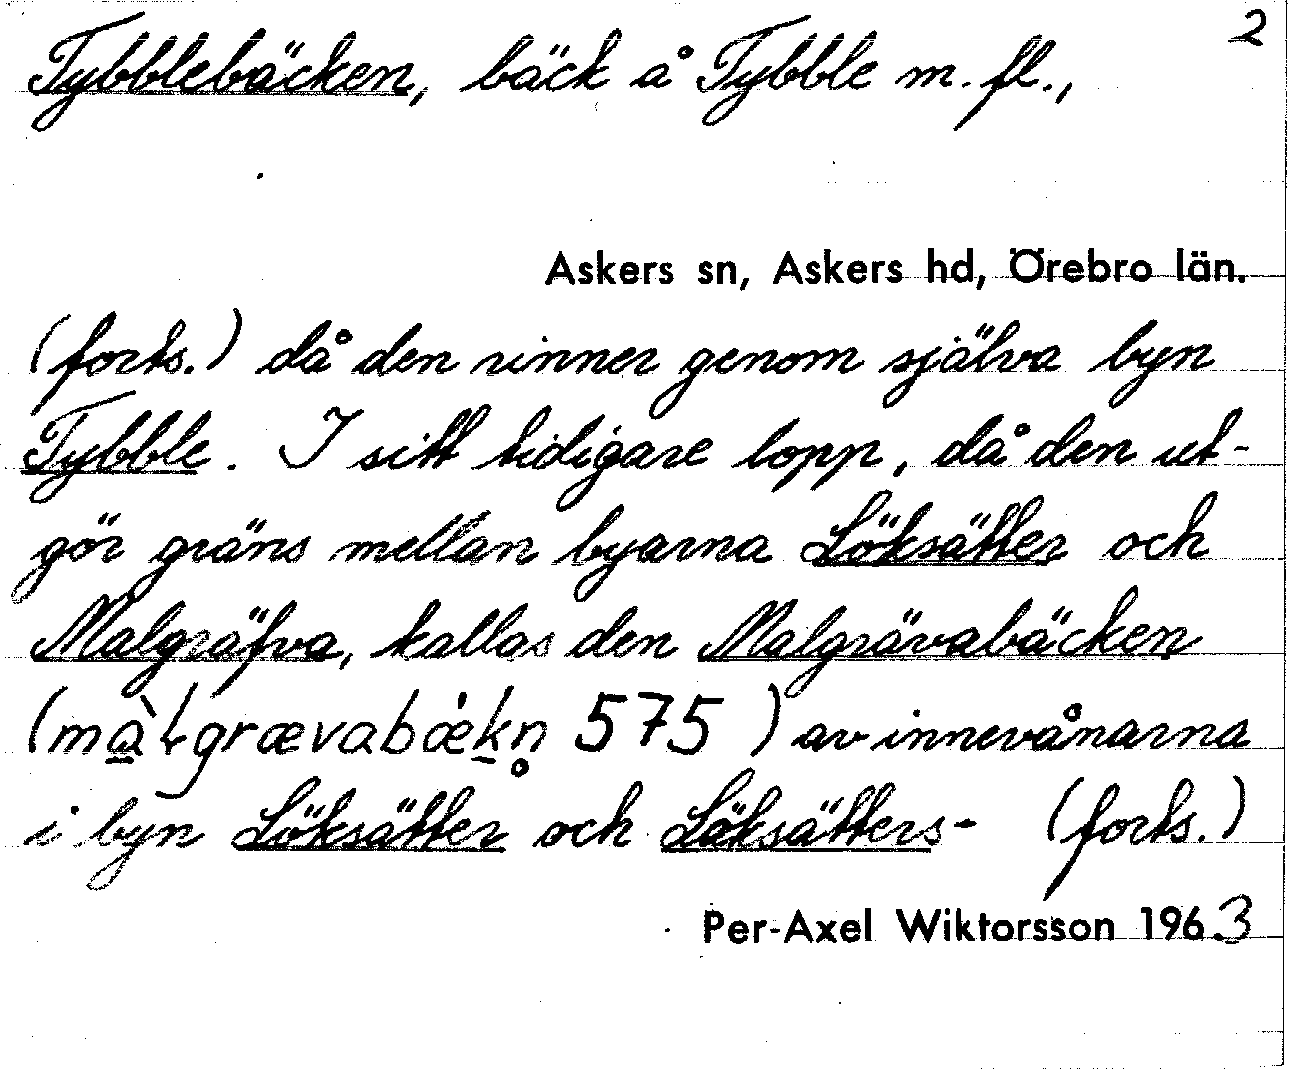 2
Tybblebäcken, bäck å Tybble m. fl.,
Askers sn, Askers hd, Örebro län.
(forts.) då den rinner genom själva byn
Tybble. I sitt tidigare lopp, då den ut-
gör gräns mellan byarna Löksätter och
Malgräfva, kallas den Malgrävabäcken
575) av innevånarna
i byn Löksätter och Löksätters- (forts.)
Per-Axel Wiktorsson 1963